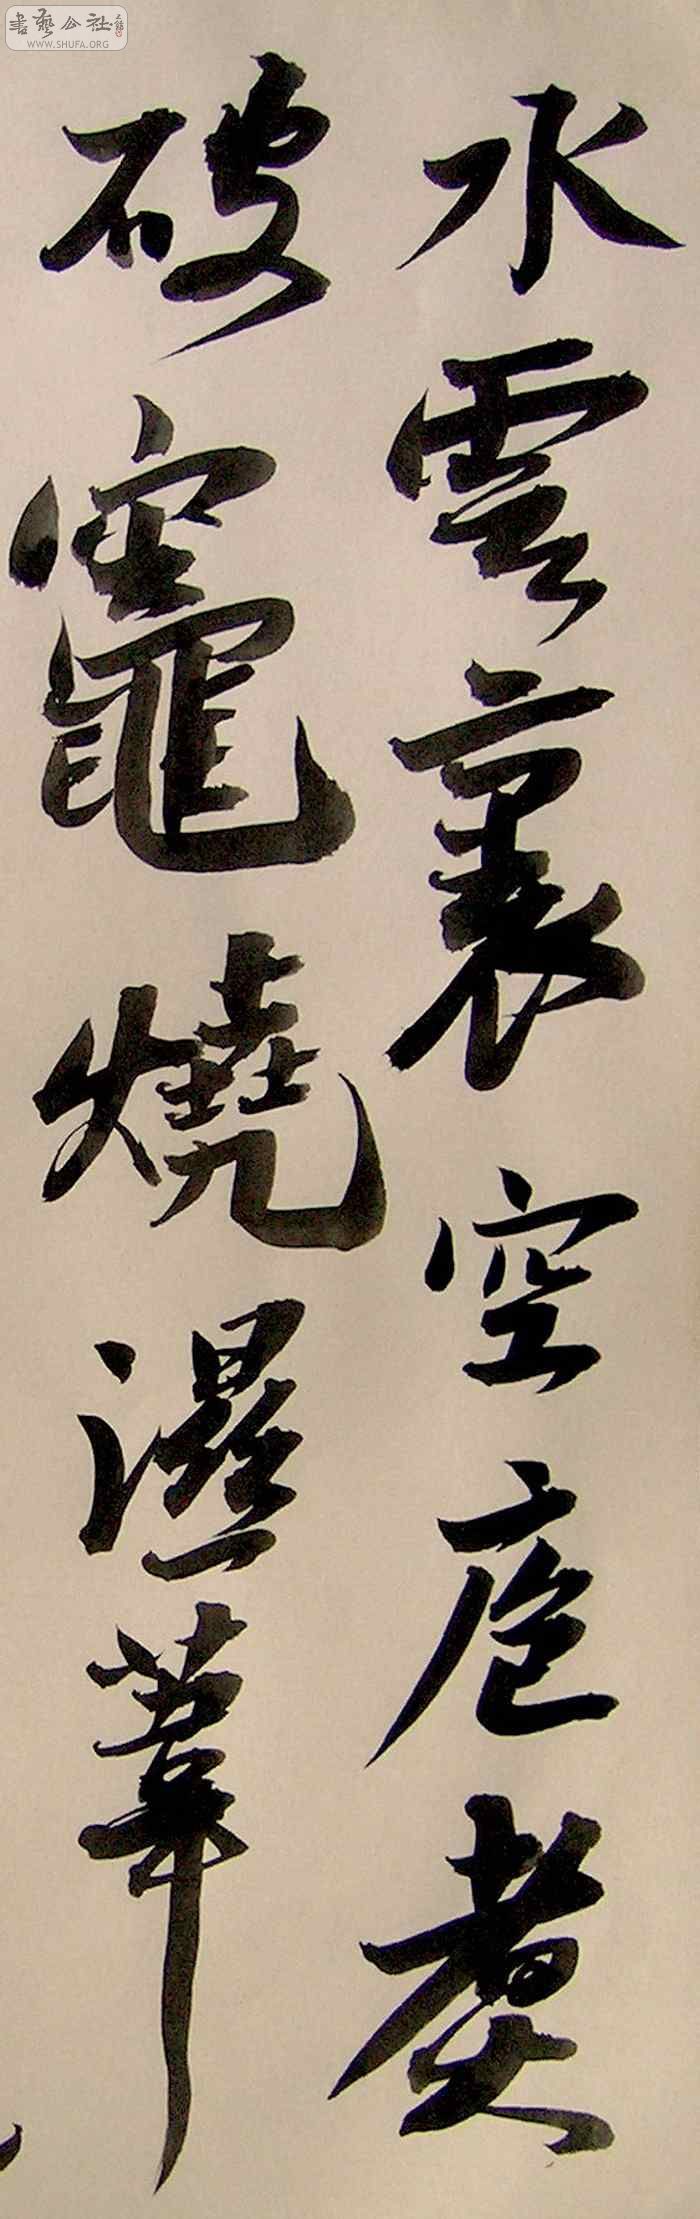 水雲裏空庖煑
破竈燒濕葦
書藝公社
WWW.SHUFA.ORG